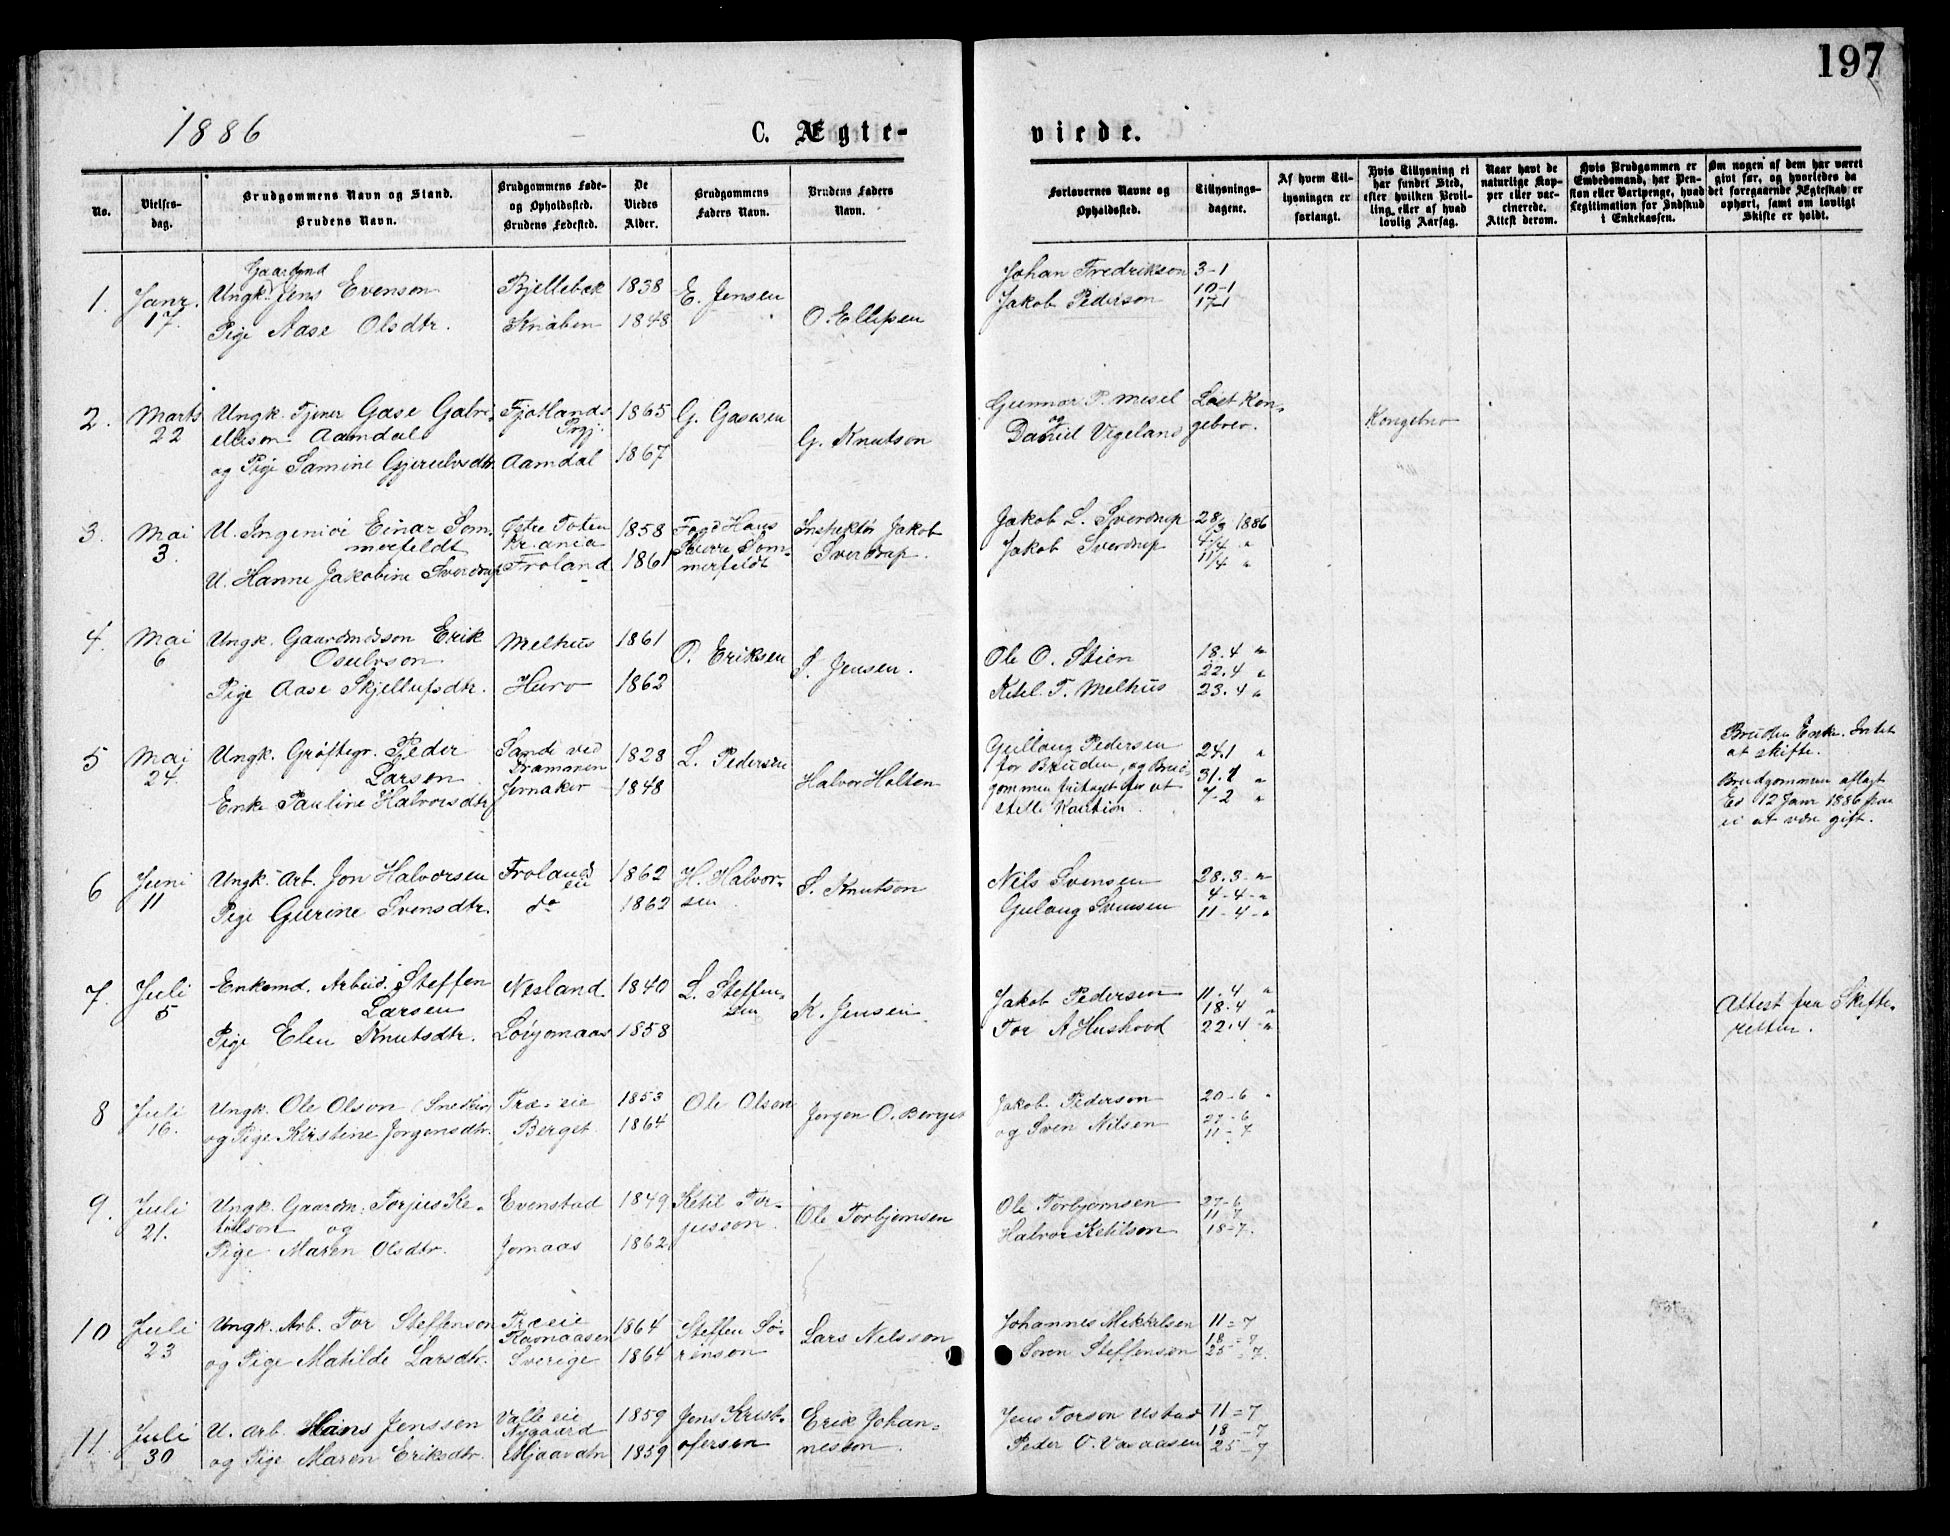 197
1886
C. Ægte-
viede.
No.
Vielses-
dag.
Brudgommens Navn og Stand.
Brudens Navn.
Brudgommens Føde-
og Opholdssted.
Brudens Fødested.
De
Viedes
Alder.
Brudgommens
Faders Navn.
Brudens Faders
Navn.
Forlovernes Navne og
Opholdssted.
Tillysnings-
dagene.
Af hvem Til-
lysningen er
forlangt.
Hvis Tillysning ei
har fundet Sted,
efter hvilken Bevil-
ling eller af hvad
lovlig Aarsag.
Naar havt de
naturlige Kop-
per eller vac-
cinerede.
Attest derom.
Hvis Brudgommen er
Embedsmand, har Pen-
sion eller Vartpenge, hvad
Legitimation for Indskud
i Enkekassen.
Om nogen af dem har været
gift før, og hvorledes da
det foregaaende Ægteskab er
ophørt, samt om lovligt
Skifte er holdt.
1.
Janr.
17.
Gaardmd
Ungk. Jens Evenson
Pige Aase Olsdtr.
Bjellebek
Knaben
1838
1848
E. Jensen
O. Ellefsen
Johan Fredrikson
Jakob Pederson
3-1
10-1
17-1
2.
Marts
22
Ungk. Tjener Gase
Aamdal
og Pige Samine
Fjotlands
Prgj.
Aamdal
1865
1867
G. Gasesen
G. Knutson
Gunnar P. Mesel
og
Daniel Vigeland
Løst Kon-
gebrev.
Kongebrev
3.
Mai
3.
U. Ingeniør Einar Som
merfeldt
U. Hanne Jakobine Sverdrup
Østre Toten
Kr.ania
Froland
1858
1861
Fogd Hans
Som-
merfeldt
Instruktør Jakob
Sverdrup.
Jakob L. Sverdrup
Jakob Sverdrup
28/3 1886
4/4 "
11/4 "
4.
Mai
6
Ungk. Gaardmdsson Erik
Osulvson
Pige Aase Skjellufsdtr.
Melhus
Huvo
1861
1862
O. Eriksen
S. Jensen.
Ole O. Stien
Ketil T. Melhus
18.4 "
22.4 "
23.4 "
5
Mai
24.
Ungk. Grøftegr. Peder
Larson
Enke Pauline Halvorsdtr
Sande ved
Drammen
Jernaker
1828
1848
L. Pedersen
Halvor Holten
Gullaug Pedersen
for Bruden, og Brud-
gommen fritaget for at
stille Kaution.
24.1 "
31.1 "
7-2 "
Bruden Enke. Intet
at skifte.
Brudgommen aflagt
Ed 12 Janr 1886 paa
ei at være gift.
6
Juni
11
Ungk. Arb. Jon Halvorsen
Pige Gurine Svensdtr.
Froland
do
1862
1862
H. Halvor-
sen
S. Knutson
Nils Svensen
Gulaug Svensen
28.3-"
4-4-"
11-4-"
7.
Juli
5
Enkemd. Arbeid. Steffen
Larsen
Pige Elen Knutsdtr.
Nesland
Lovjomaas
1840
1858
L. Steffen-
sen
K. Jensen.
Jakob Pedersen
Tor A Hushovd
11.4 "
18.4 "
22.4 "
Attest fra Skifte-
retten.
8
Juli
16.
Ungk. Ole Olson (Snekker)
og Pige Kirstine Jorgensdtr.
Træ. eie
Berget
1853
1864
Ole Olson
Jorgen O. Berget
Jakob Pederson
og Sven Nilsen
20-6 "
27-6
11-7
9.
Juli
21.
Ungk. Gaardm. Torjus Ke-
tilson og
Pige Maren Olsdtr.
Evenstad
Jomaas
1849
1862
Ketil Tor-
jusson.
Ole Torbjornsen
Ole Torbjornsen
Halvor Ketilson
27-6
11-7
18-7.
10
Juli
23
Ungk. Arb. Tor Steffenson
og Pige Matilde Larsdtr.
Træeie
Ravnaasen
Sverige
1864
1864
Steffen Sø-
renson
Lars Nilsson
Johannes Mikkelsen
Soren Steffenson
11=7
18-7
25-7.
11.
Juli
30
U. Arb. Hans Jenssen
og Pige Maren Eriksdtr.
Valle eie
Nygaard
Mjaavdtn
1859
1859
Jens Krist-
oferson
Erik Johan-
nesson.
Jens Torson Ustad
Peder O. Vavaasen
11=7
18-7
25-7